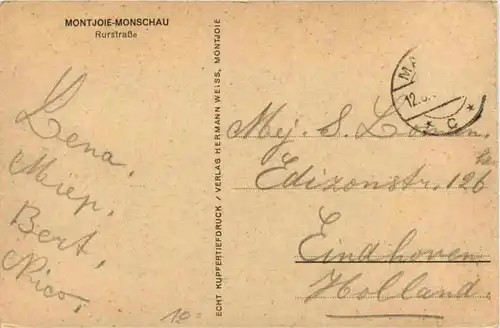 MONTJOIE-MONSCHAU
Rurstraße
Lena,
Miep,
Bert,
Nico,
ECHT KUPFERTIEFDRUCK / VERLAG HERMANN WEISS, MONTJOIE
Mej. S.
Edixonstr. 126
Eindhoven
Holland.
10=
M
12.
* C *